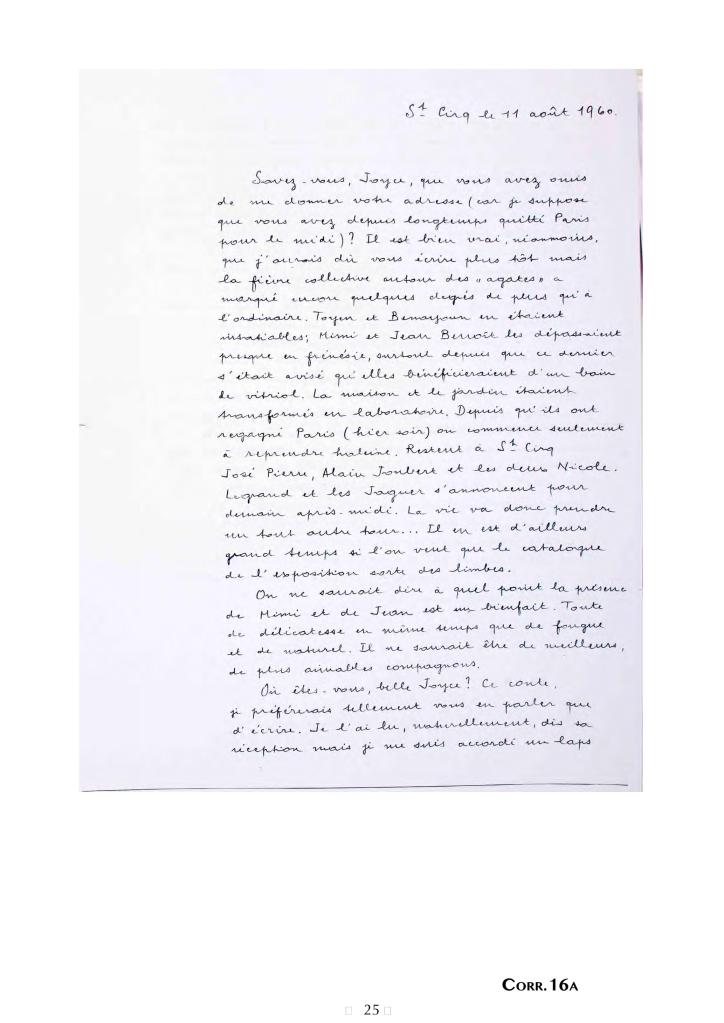 St Cirq le 11 août 1960.
Savez-vous, Joyce, que vous avez omis
de me donner votre adresse (car je suppose
que vous avez depuis longtemps quitté Paris
pour le midi)? Il est bien vrai, néanmoins,
que j'aurais dû vous écrire plus tôt mais
la fièvre collective autour des "agates" a
marqué encore quelques degrés de plus qu'à
l'ordinaire. Toyen et Benayoun en étaient
insatiables; Mimi et Jean Benoît les dépassaient
presque en frénésie, surtout depuis que ce dernier
s'était avisé qu'elles bénéficieraient d'un bain
de vitriol. La maison et le jardin étaient
transformés en laboratoire. Depuis qu'ils ont
regagné Paris (hier soir) on commence seulement
à reprendre haleine. Restent à St Cirq
José Pierre, Alain Joubert et les deux Nicole.
Legrand et les Jaguer s'annoncent pour
demain après-midi. La vie va donc prendre
un tout autre tour... Il en est d'ailleurs
grand temps si l'on veut que le catalogue
de l'exposition sorte des limbes.
On ne saurait dire à quel point la présence
de Mimi et de Jean est un bienfait. Toute
de délicatesse en même temps que de fougue
et de naturel. Il ne saurait être de meilleurs,
de plus aimables compagnons.
Où êtes-vous, belle Joyce? Ce conte,
je préférerais tellement vous en parler que
d'écrire. Je l'ai lu, naturellement, dès sa
réception mais je me suis accordé un laps
CORR.16A
25